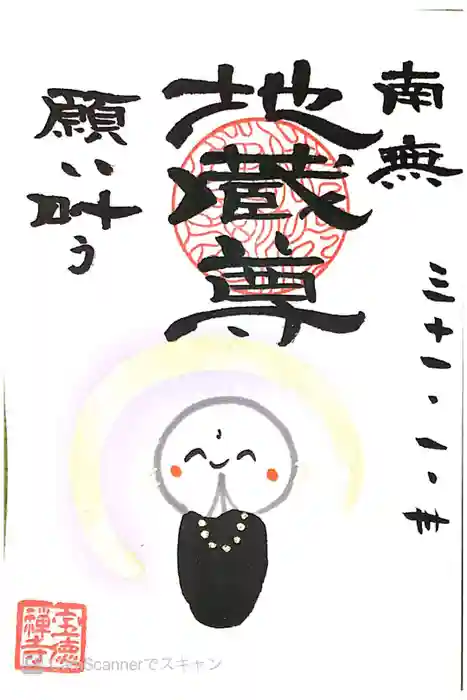 南無
三十一・一・
地蔵尊
願い叶う
宝徳
禅寺
CamScannerでスキャン